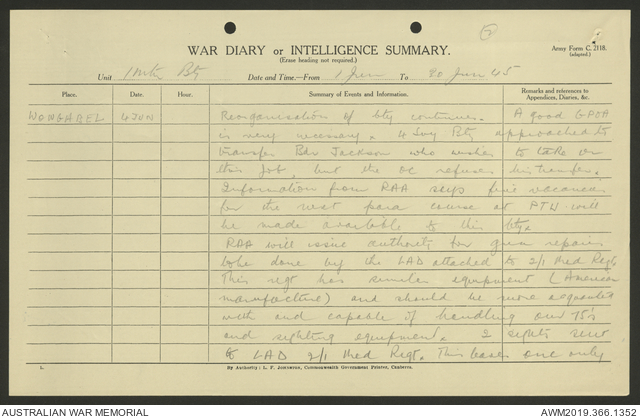 WAR DIARY or INTELLIGENCE SUMMARY.
(Erase heading not required.)
Army Form C. 2118.
(adapted.)
Unit 1 Mtn Bty Date and Time.—From 1 Jun To 30 Jun 45
Place. Date. Hour. Summary of Events and Information. Remarks and references to Appendices, Diaries, &c.
WONGABEL 4 JUN Reorganisation of bty continues. A good GPOA
is very necessary. 4 Svy Bty approached to
transfer Bdr Jackson who wishes to take on
this job, but the OC refuses his transfer.
Information from RAA says five vacancies
for the next para course at PTW will
be made available to this bty.
RAA will issue authority for gun repairs
to be done by the LAD attached to 2/1 Med Regt.
This regt has similar equipment (American
manufacture) and should be more acquainted
with and capable of handling our 75's
and sighting equipment. 2 sights sent
to LAD 2/1 Med Regt. This leaves one only
By Authority: L. F. Johnston, Commonwealth Government Printer, Canberra.
AUSTRALIAN WAR MEMORIAL
AWM2019.366.1352